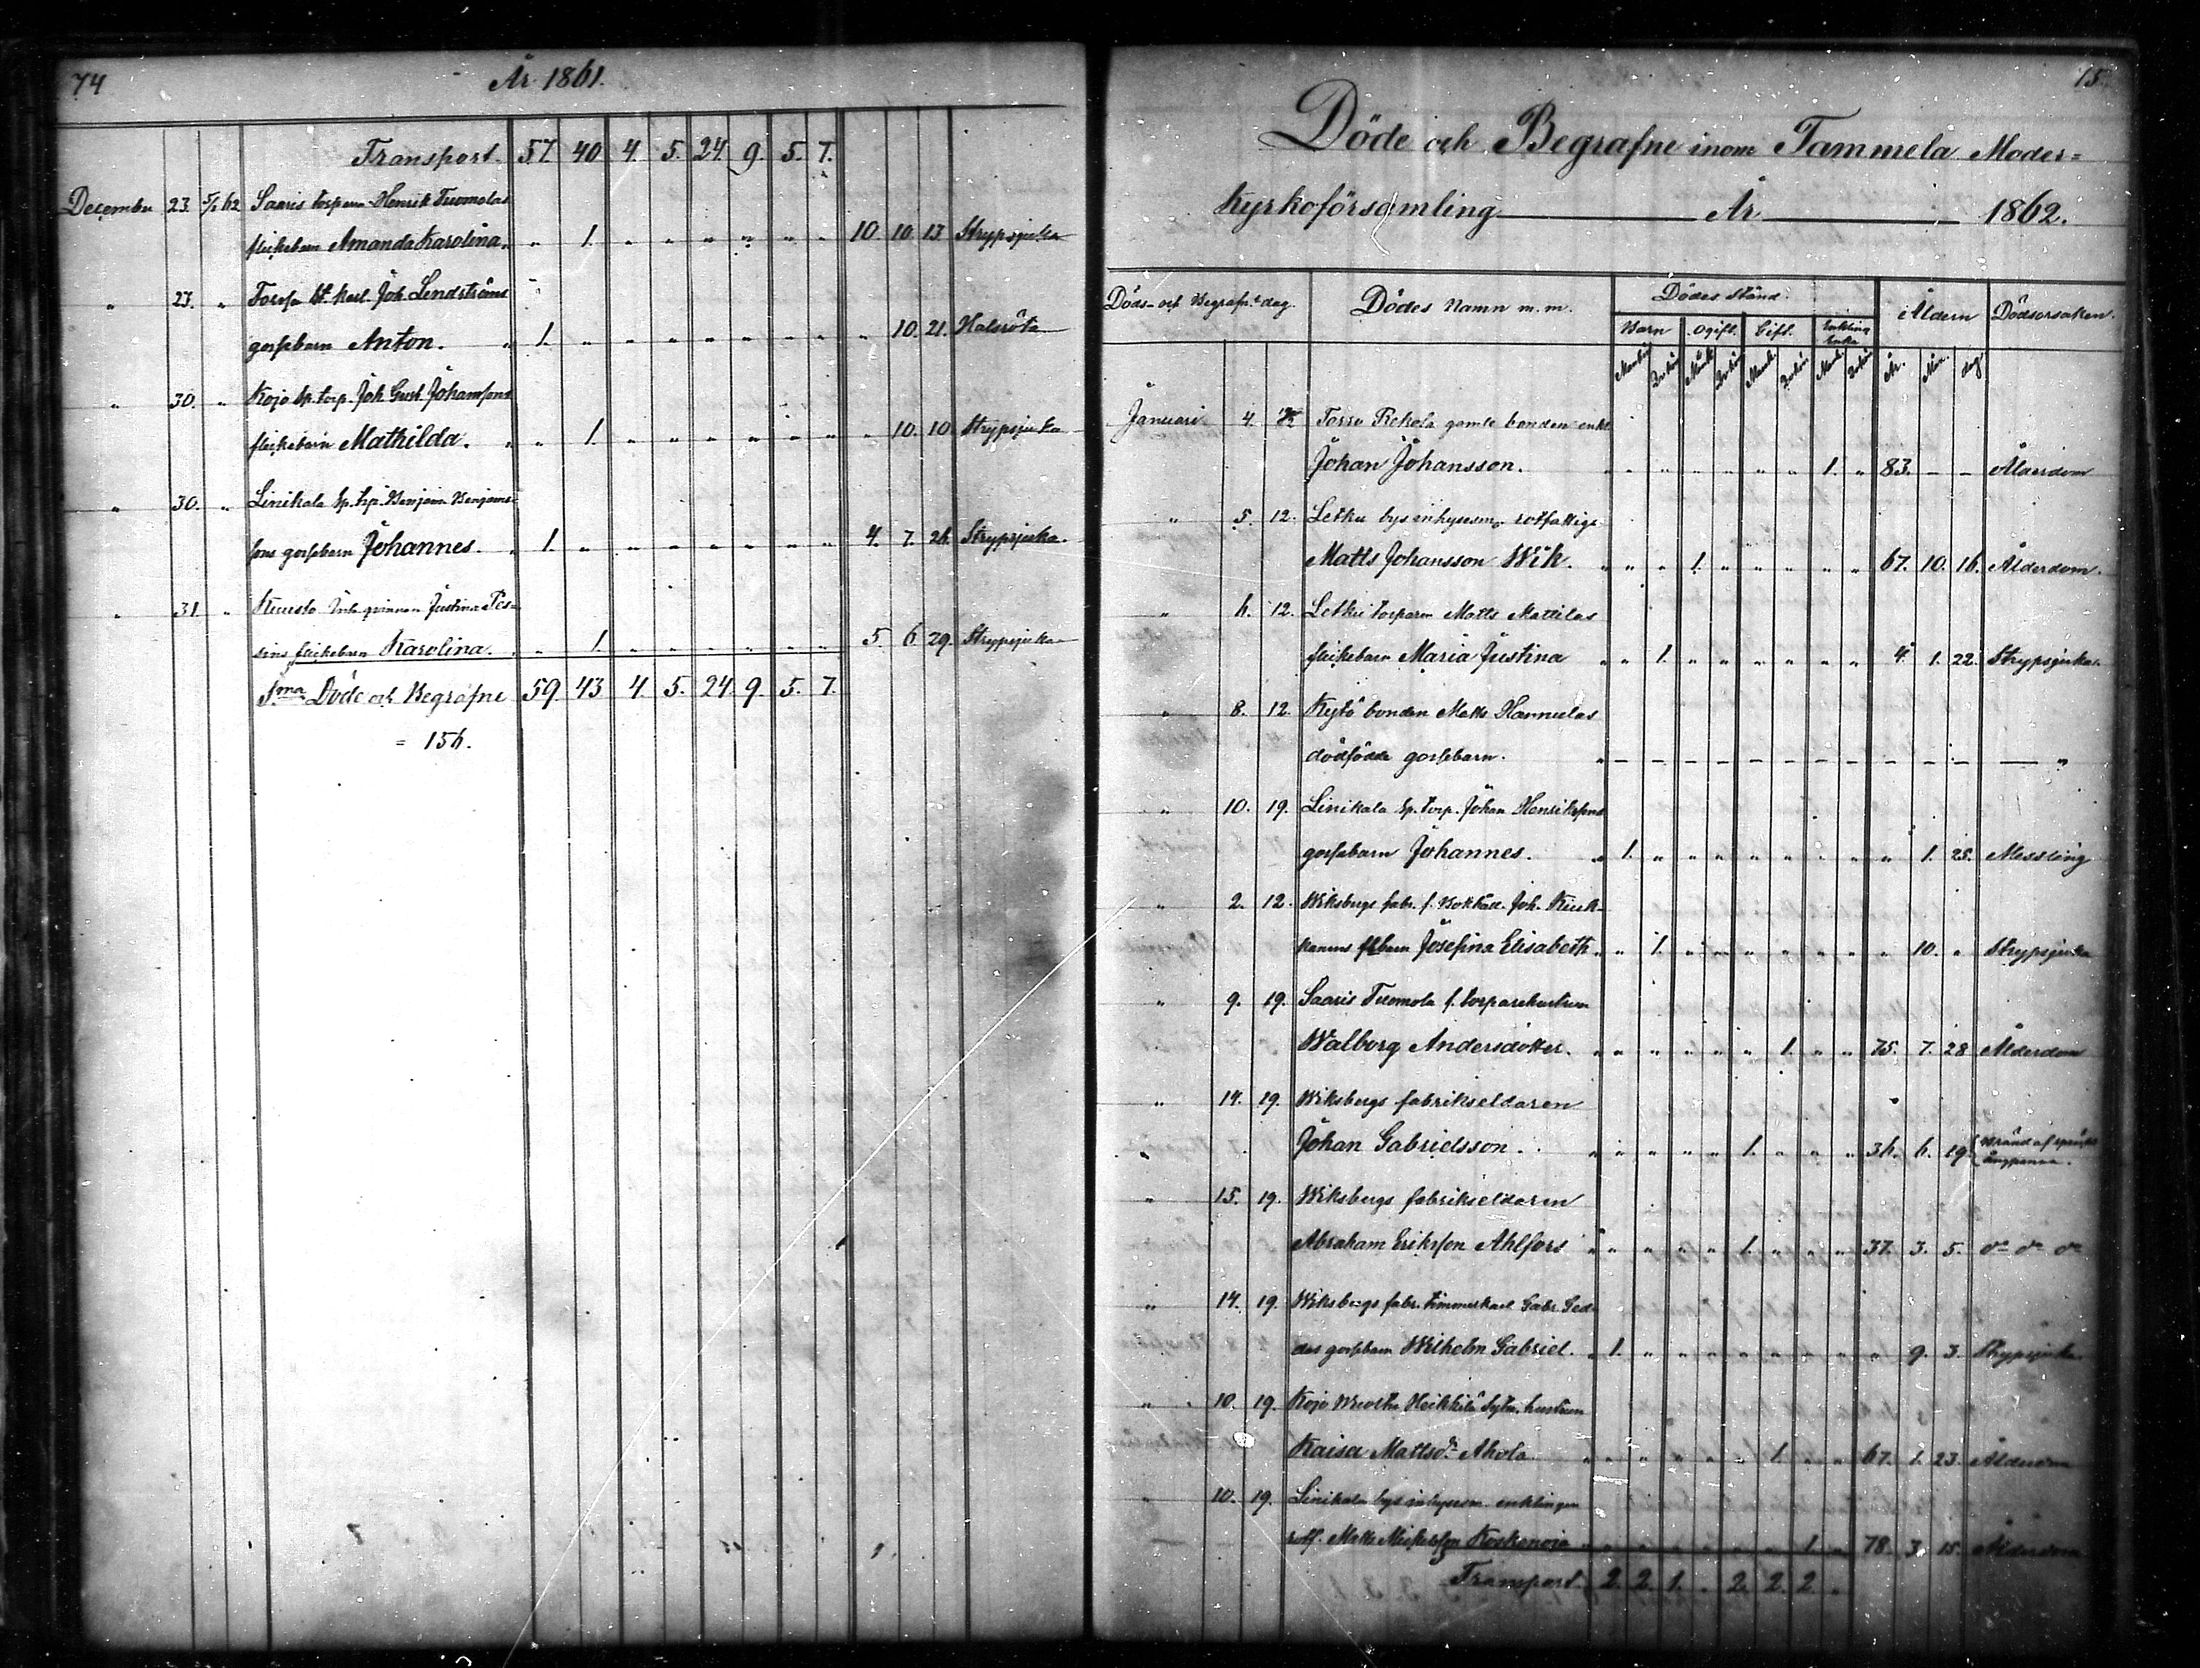 74
År 1861.
Transport. 57. 40 4. 5. 24. 9. 5. 7.
December 23. 5/1 62 Saaris torparen Henrik Tuomolas
flickebarn Amanda Karolina. " 1. " " " " " " 10. 10. 13. Strypsjuka
" 27. " Forssa
Joh. Lindströms
gossebarn Anton. " 1. " " " " " " " " 10. 21. Halsröta
" 30. " Kojo sp. torp. Joh. Gust. Johanssons
flickebarn Mathilda. " " 1. " " " " " " " 10. 10. Strypsjuka
" 30. " Linikala sp. trp. Benjam. Benjams-
sons gossebarn Johannes. " 1. " " " " " " " 4. 7. 26. Strypsjuka.
" 31 " Kuusto Inh. qvinnan Justina
sins flickebarn Karolina. " " 1. " " " " " " 5. 6 29. Strypsjuka
Sma Döde och Begrafne 59. 43 4. 5. 24. 9. 5. 7.
= 156.
15.
Döde och Begrafne inom Tammela Moder=
kyrkoförsamling År 1862.
Döds- och Begrafn.s dag. Dödes Namn m. m. Dödes Stånd. Åldern Dödsorsaken.
Barn Ogift. Gift. Enkling Enka
Mankön Qvinkön Mank. Qvinkön Mank. Qvinkön Mank. Qvinkön År. Mån. dag.
Januari 4. 12 Torro Rekola gamle bonden enkl
Johan Johansson. " " " " " " " 1. " 83. - - Ålderdom
" 5. 12. Letku bys inhysesm. rotfattige
Matts Johansson Wik. " " " 1. " " " " " 67. 10. 16. Ålderdom.
" 6. 12. Letku torparen Matts Mattilas
flickebarn Maria Justina " " 1. " " " " " " 4. 1. 22. Strypsjuka.
" 8. 12. Kytö bonden Matts Hannulas
dödfödda gossebarn. " - - - - - - - - - - - - "
" 10. 19. Linikala sp. torp. Johan Henrikssons
gossebarn Johannes. " 1. " " " " " " " " 1. 25. Messling
" 2. 12. Wiksbergs fabr. f. Bokhåll. Joh. Kiuk-
kanens flbarn Josefina Elisabeth " " 1. " " " " " " " 10. " Strypsjuka
" 9. 19. Saaris Tuomola f. torparehustrun
Walborg Andersdotter. " " " " " " 1. " " 75. 7. 28 Ålderdom
" 14. 19. Wiksbergs fabrikseldaren
Johan Gabrielsson. " " " " " 1. " " " 36. 6. 19. Bränd af
ångpanna.
" 15. 19. Wiksbergs fabrikseldaren
Abraham Eriksson Ahlfors " " " " " 1. " " " 37. 3. 5. do do do
" 14. 19. Wiksbergs fabr. timmerkarl Gabr. Ged-
das gossebarn Wilhelm Gabriel. " 1. " " " " " " " " 9. 3. Strypsjuka.
" 10. 19. Kojo
Heikkilä Sytn. hustrun
Kaisa Mattsdr Ahola " " " " " " 1. " " 67. 1. 23. Ålderdom
" 10. 19. Linikala bys inhysesm. enklingen
rotf. Matts Mickelsson Koskenoja " " " " " " " 1. " 78. 3. 15. Ålderdom
Transport. 2. 2. 1. " 2. 2. 2. "